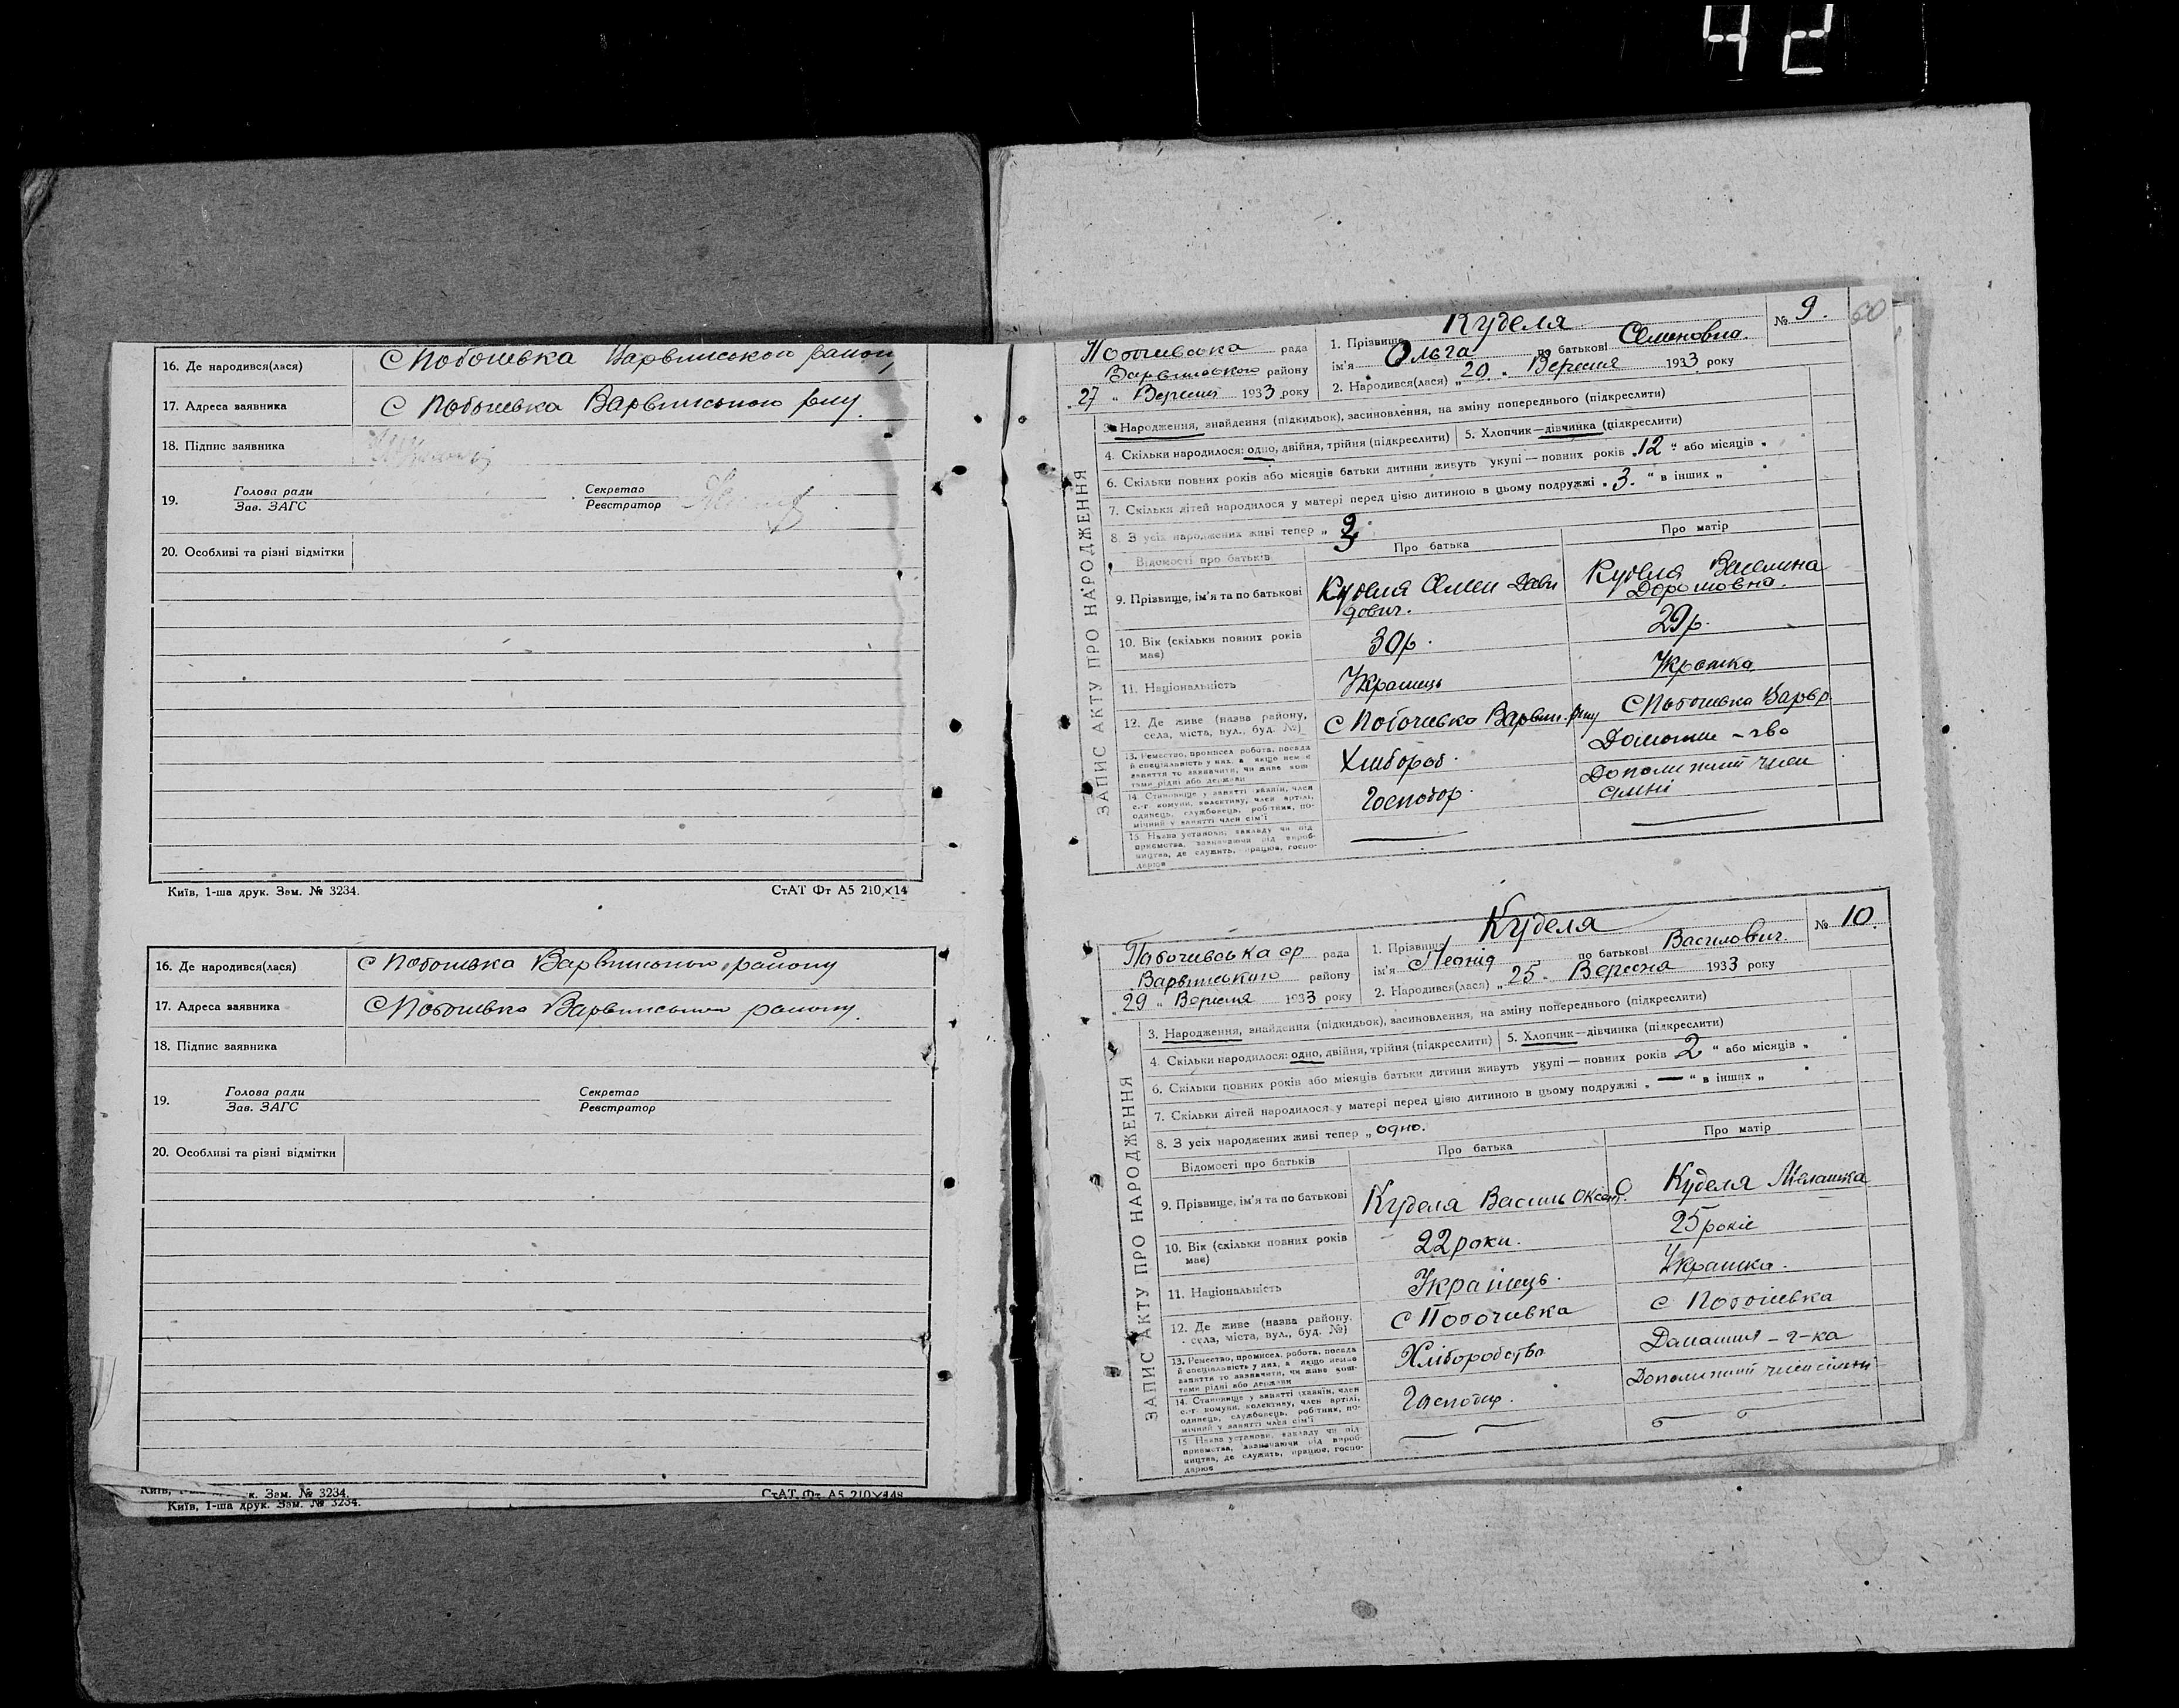 42
16. Де народився(лася) С Поточивка Варвинського району
17. Адреса заявника С Поточивка Варвинського р-ну.
18. Підпис заявника
19. Голова ради Секретар
Зав. ЗАГС Реєстратор
20. Особливі та різні відмітки
Київ, 1-ша друк. Зам. № 3234. СтАТ Фт А5 210×14
16. Де народився(лася) С Поточивка Варвинського району
17. Адреса заявника С Поточивка Варвинського району.
18. Підпис заявника
19. Голова ради Секретар
Зав. ЗАГС Реєстратор
20. Особливі та різні відмітки
к. Зам. № 3234. СтАТ Фт А5 210×148
Київ, 1-ша друк. Зам. № 3234.
60
ЗАПИС АКТУ ПРО НАРОДЖЕННЯ
рада
Варвинського району
„27 „ Вересня 1933 року
1. Прізвище Куделя
ім'я Ольга по батькові Семеновна.
2. Народився(лася) „20 „ Вересня 1933 року
№ 9.
3. Народження, знайдення (підкидьок), засиновлення, на зміну попереднього (підкреслити)
4. Скільки народилося: одно, двійня, трійня (підкреслити) 5. Хлопчик—дівчинка (підкреслити)
6. Скільки повних років або місяців батьки дитини живуть укупі — повних років „12 “ або місяців „
7. Скільки дітей народилося у матері перед цією дитиною в цьому подружжі „3. “ в інших „
8. З усіх народжених живі тепер „
Відомості про батьків Про батька Про матір
9. Прізвище, ім'я та по батькові Куделя Семен Дави
дович. Куделя
10. Вік (скільки повних років
має) 30 р. 29 р.
11. Національність Українець Українка
12. Де живе (назва району,
села, міста, вул., буд. №) С Поточивка Варвин. р-ну С Поточивка Варвр
13. Ремество, промисел, робота, посада
й спеціяльність у них, а якщо немає
заняття то зазначити, чи живе кош-
тами рідні або держави Хлибороб.
14. Становище у занятті (хазяїн, член
с.-г. комуни, колективу, член артілі,
одинець, службовець, робітник, по-
мічний у занятті член сім'ї Господор.
15. Назва установи, закладу чи під-
приємства, зазначаючи рід вироб-
ництва, де служить, працює, госпо-
дарює
ЗАПИС АКТУ ПРО НАРОДЖЕННЯ
Поточивська ср рада
Варвинського району
„29 „ Вересня 1933 року
1. Прізвище Куделя
ім'я Леонід по батькові Василович.
2. Народився(лася) „25 „ Вересня 1933 року
№ 10.
3. Народження, знайдення (підкидьок), засиновлення, на зміну попереднього (підкреслити)
4. Скільки народилося: одно, двійня, трійня (підкреслити) 5. Хлопчик—дівчинка (підкреслити)
6. Скільки повних років або місяців батьки дитини живуть укупі — повних років „2 “ або місяців „
7. Скільки дітей народилося у матері перед цією дитиною в цьому подружжі „— “ в інших „
8. З усіх народжених живі тепер „ одно.
Відомості про батьків Про батька Про матір
9. Прізвище, ім'я та по батькові Куделя Василь Куделя Мелашка
10. Вік (скільки повних років
має) 22 роки. 25 років
11. Національність Українець. Українка.
12. Де живе (назва району,
села, міста, вул., буд. №) С Поточивка С Поточивка
13. Ремество, промисел, робота, посада
й спеціяльність у них, а якщо немає
заняття то зазначити, чи живе кош-
тами рідні або держави Хліборобство Домашня - г-ка
14. Становище у занятті (хазяїн, член
с.-г. комуни, колективу, член артілі,
одинець, службовець, робітник, по-
мічний у занятті член сім'ї Господор.
15. Назва установи, закладу чи під-
приємства, зазначаючи рід вироб-
ництва, де служить, працює, госпо-
дарює